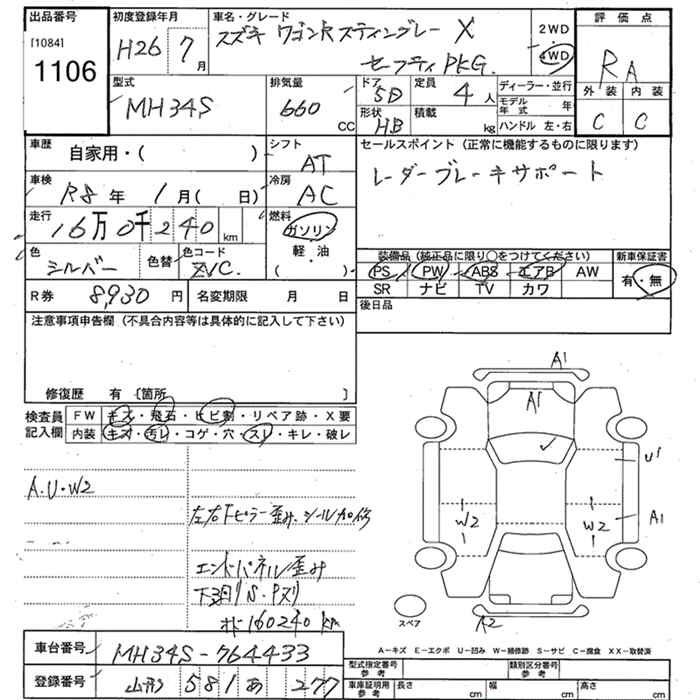 出品番号 初度登録年月 車名・グレード 評価点
[1084] 1106 H26年 7月 スズキ ワゴンR スティングレー X 2WD
セーフティPKG. 4WD RA
外装 内装
C C
型式 排気量 ドア 定員 ディーラー・並行
MH34S 660 cc 5D 4人 モデル年式 年
形状 積載 ハンドル 左・右
HB kg
車歴 自家用・( ) シフト AT セールスポイント (正常に機能するものに限ります)
レーダーブレーキサポート
車検 R8年 1月( 日) 冷房 AC
走行 16万0千240km 燃料 ガソリン
軽・油
( )
色 シルバー 色替 色コード ZVC. 装備品 (純正品に限り○をつけてください) 新車保証書
PS PW ABS エアB AW 有・無
SR ナビ TV カワ
R券 8930円 名変期限 月 日 後日品
注意事項申告欄 (不具合内容等は具体的に記入して下さい)
修復歴 有 [箇所 ]
検査員記入欄 FW キズ・飛石・ヒビ割・リペア跡・X要
内装 キズ・汚レ・コゲ・穴・スレ・キレ・破レ
A1
A1
U1
A.U.W2
左右Fピラー歪み、シール加修
W2 W2 A1
エンドパネル歪み
下廻りS.Pヌリ
オド160240km
スペア A2
A-キズ E-エクボ U-凹み W-補修跡 S-サビ C-腐食 XX-取替済
車台番号 MH34S-764433
型式指定番号 参考 類別区分番号 参考
登録番号 山形 581 あ 277
車庫証明用 参考 長さ cm 幅 cm 高さ cm